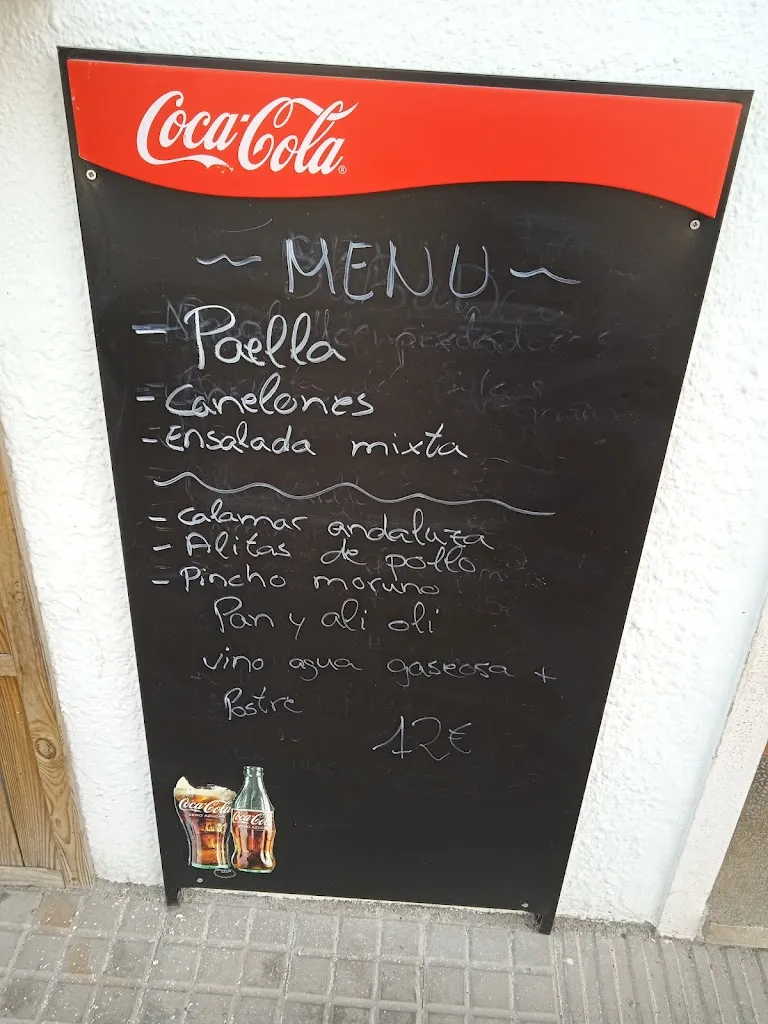 Coca-Cola®
~ MENU ~
- Paella
- Canelones
- Ensalada mixta
- Calamar andaluza
- Alitas de pollo
- Pincho moruno
Pan y ali oli
vino agua gaseosa +
Postre
12€
Coca-Cola
ZERO AZÚCAR
Coca-Cola
ZERO AZÚCAR